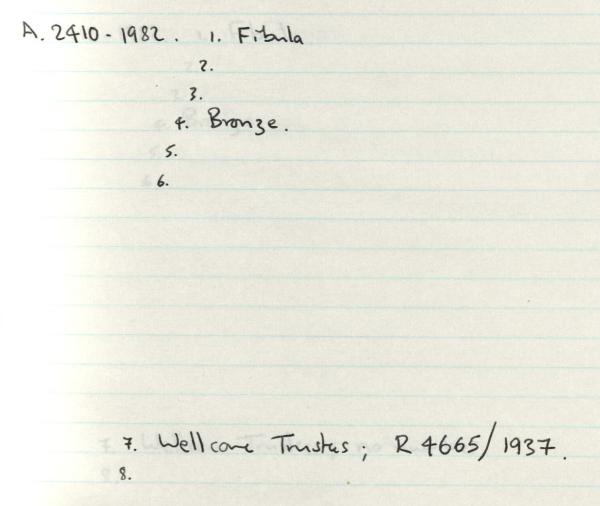 A. 2410-1982. 1. Fibula
2.
3.
4. Bronze.
5.
6.
7. Wellcome Trustees; R 4665/1937.
8.